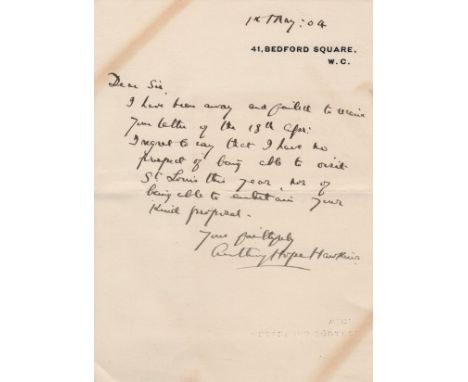 1st May: 04
41, BEDFORD SQUARE.
W.C.
Dear Sir,
I have been away and failed to receive
your letter of the 13th Apr:
I regret to say that I have no
prospect of being able to visit
St Louis this year, nor of
being able to entertain your
kind proposal.
Yours faithfully
Anthony Hope Hawkins